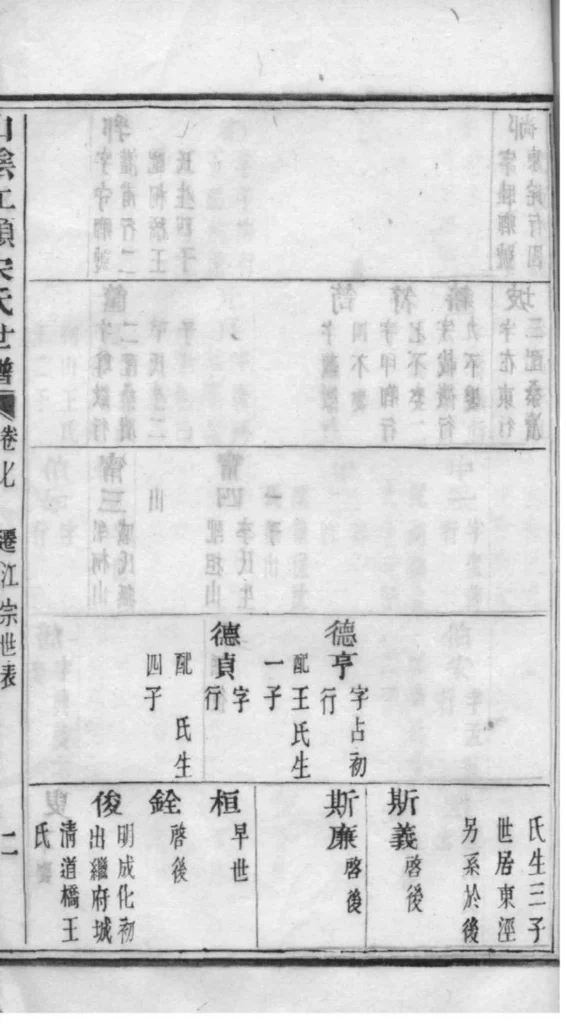 德亨
字占初
行
配王氏生
一子
德貞
字
行
配 氏生
四子
氏生三子
世居東涇
另系於後
斯義
啓後
斯廉
啓後
桓
早世
銓
啓後
俊
明成化初
出繼府城
清道橋王
氏
山陰江頭宋氏世譜
卷七
遷江宗世表
二